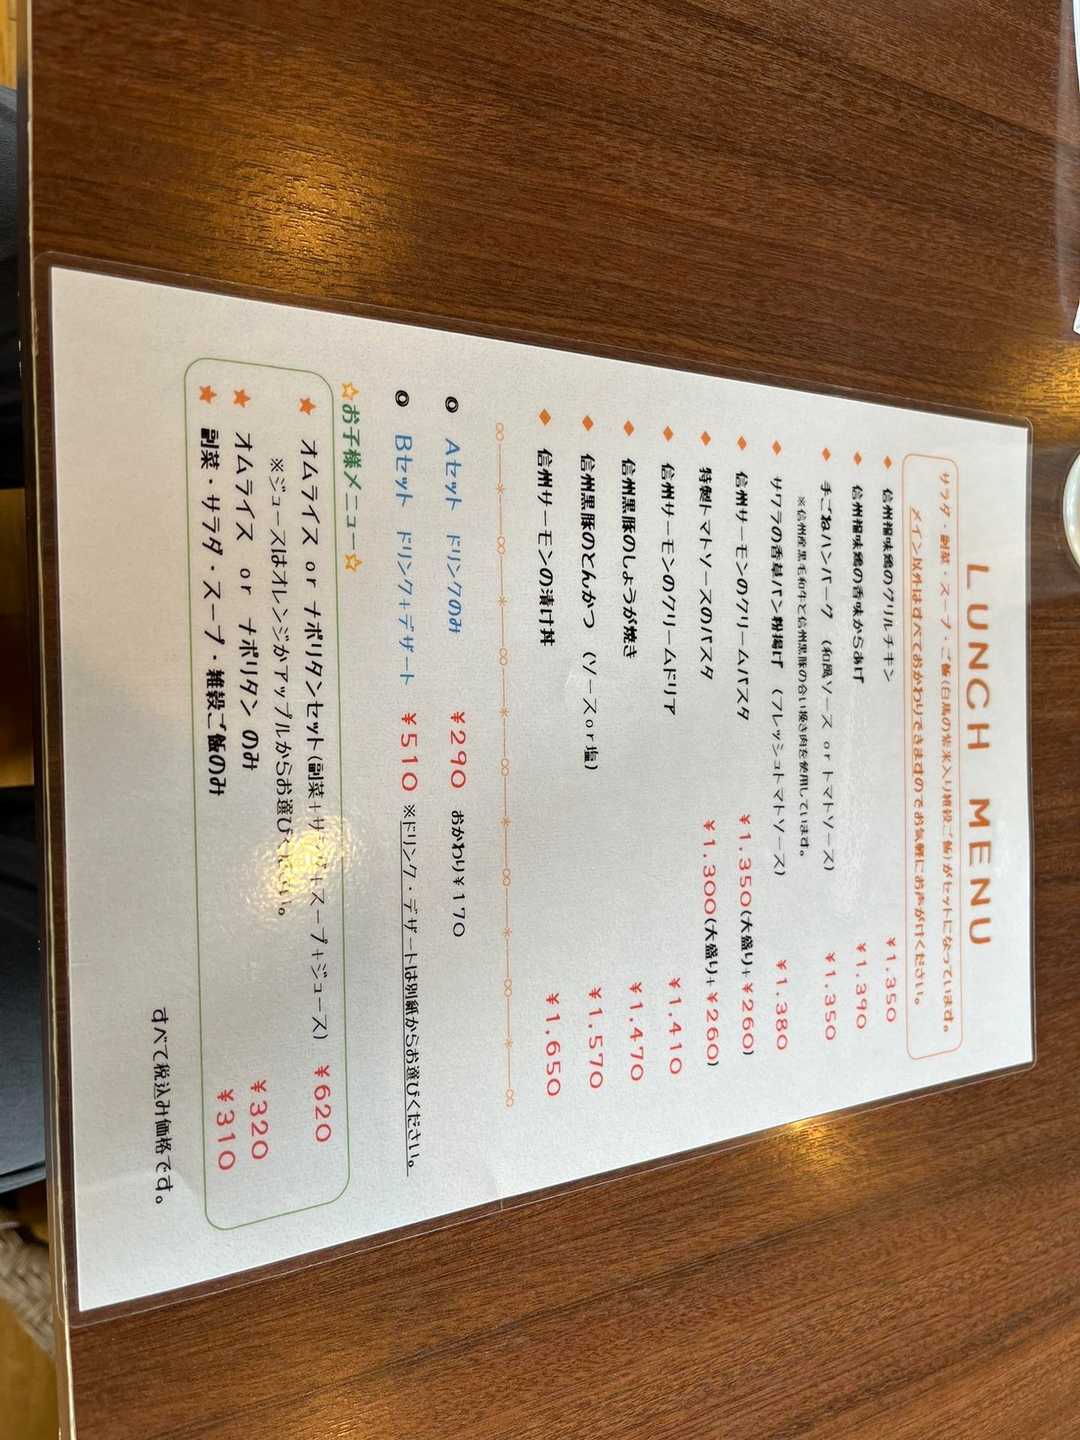 LUNCH MENU
サラダ・副菜・スープ・ご飯(白馬の紫米入り雑穀ご飯)がセットになっています。
メイン以外はすべておかわりできますのでお気軽にお声がけください。
◆ 信州福味鶏のグリルチキン ¥1.350
◆ 信州福味鶏の香味からあげ ¥1.390
◆ 手ごねハンバーグ (和風ソース or トマトソース) ¥1.350
※信州産黒毛和牛と信州黒豚の合い挽き肉を使用しています。
◆ サワラの香草パン粉揚げ (フレッシュトマトソース) ¥1.380
◆ 信州サーモンのクリームパスタ ¥1.350(大盛り+¥260)
◆ 特製トマトソースのパスタ ¥1.300(大盛り+¥260)
◆ 信州サーモンのクリームドリア ¥1.410
◆ 信州黒豚のしょうが焼き ¥1.470
◆ 信州黒豚のとんかつ (ソースor塩) ¥1.570
◆ 信州サーモンの漬け丼 ¥1.650
◎ Aセット ドリンクのみ ¥290 おかわり¥170
◎ Bセット ドリンク+デザート ¥510 ※ドリンク・デザートは別紙からお選びください。
☆お子様メニュー☆
★ オムライス or ナポリタンセット(副菜+サラダ+スープ+ジュース) ¥620
※ジュースはオレンジかアップルからお選びください。
★ オムライス or ナポリタン のみ ¥320
★ 副菜・サラダ・スープ・雑穀ご飯のみ ¥310
すべて税込み価格です。